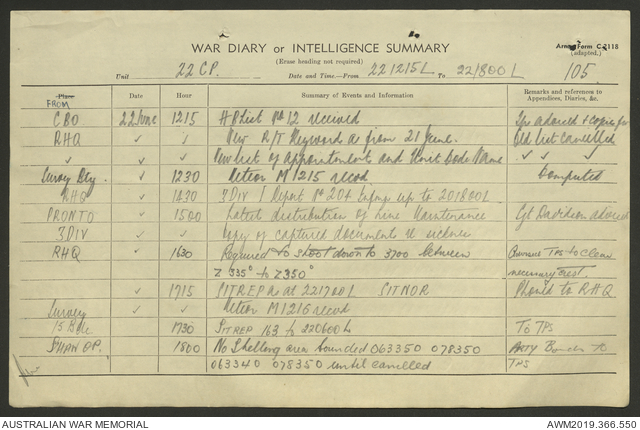 WAR DIARY or INTELLIGENCE SUMMARY
Army Form C.2118
(Erase heading not required)
(adapted.)
Unit 22 CP. Date and Time—From 221215L To 221800L 105.
Place Date Hour Summary of Events and Information Remarks and references to Appendices, Diaries, &c.
FROM
CBO 22 June 1215 received
RHQ ✓ ✓ New R/T Keyword as from 21 June. Old list cancelled
✓ ✓ ✓ New list of appointment and Unit Code Name ✓ ✓ ✓
Survey Bty ✓ 1230 Meteor M1215 recd Computed
RHQ ✓ 1430 3 DIV I Report No 204 up to 201800L
PRONTO ✓ 1500 Latest distribution of Line Maintenance
3 DIV ✓ ✓ Copy of captured documents
RHQ ✓ 1630 Required to shoot down to 3700 between
Z 335° to Z 350° necessary crest.
✓ 1715 SITREP as at 221700L SITNOR Phoned to RHQ
Survey ✓ ✓ Meteor M1216 recd
15 Bde 1730 SITREP 163 to 220600L To TPS
SHAW OP. 1800 No Shelling area bounded 063350 078350
063340 078350 until cancelled TPS
AUSTRALIAN WAR MEMORIAL
AWM2019.366.550